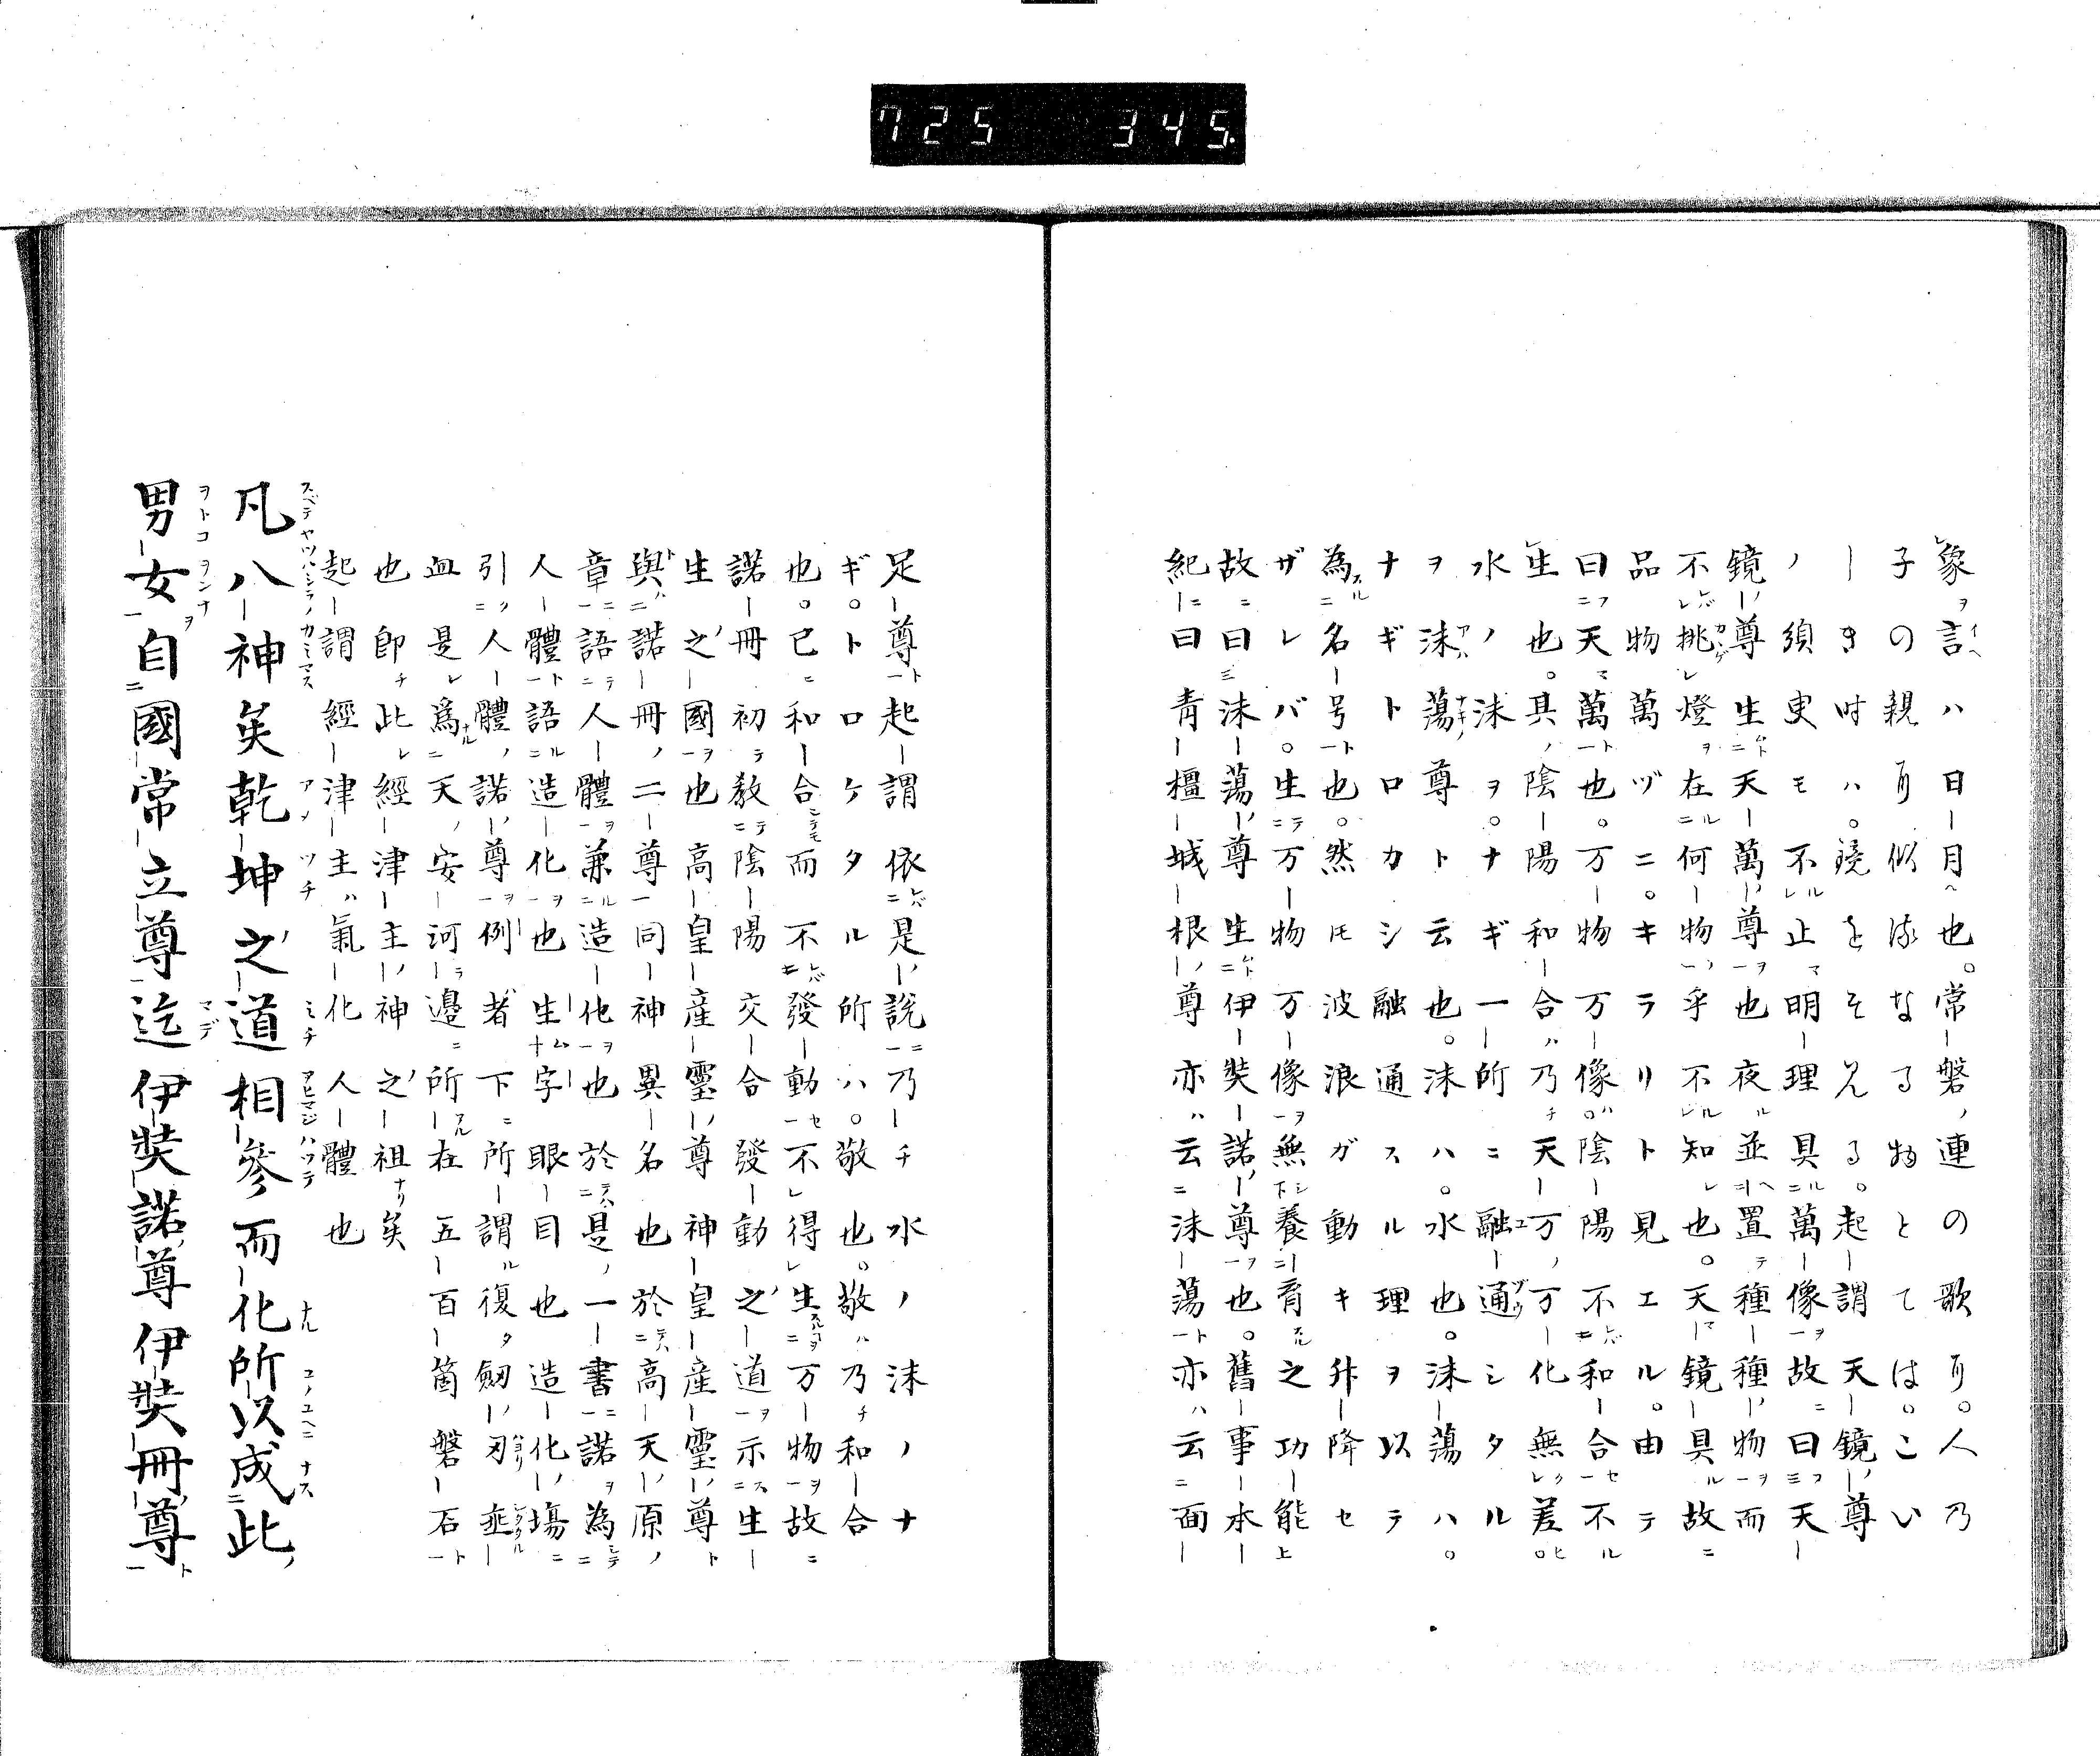 725 345.
象ヲ言ハ日月也。常磐ノ連の歌ニ。人乃
子の親ニ似なる物とては。こい
ーき时ハ。鏡をそ見る。起謂天鏡尊
ノ須叟モ不止明理具萬像故ニ曰天
鏡尊生天萬尊也夜並置種種物而
不挑燈在何物乎不知也。天鏡具故ニ
品物萬ヅニ。キラリト見エル。由テ
曰天萬也。万物万像。陰陽不和合不
生也。其陰陽和合ハ乃チ天万ノ万化無差。
水ノ沫ヲ。ナギ一所ニ融通シタルハ。
ヲ沫蕩尊ト云也。沫ハ。水也。沫蕩ハ。
ナギトロカシ融通スル理ヲ以テ
為名号也。然モ波浪ガ動キ升降セ
ザレバ。生万物万像無養育之功能
故ニ曰沫蕩尊生伊奘諾尊也。舊事本
紀ニ曰青橿城根尊亦ハ云沫蕩亦ハ云面
足尊起謂依是説乃チ水ノ沫ノナ
ギ。トロケタル所ハ。敬也。敬ハ乃チ和合
也。已ニ和合而不發動不得生万物故ニ
諾冊初テ教陰陽交合發動之道示生
生之國也高皇産靈尊神皇産靈尊
與諾冊二尊同神異名也於高天原
章語人體兼造化也於是一書諾為
人體語造化也生字眼目也造化塲ニ
引人體諾尊例者下ニ所謂復劔刃垂
血是爲天安河邊所在五百箇磐石
也即チ此經津主神之祖矣
起謂經津主ハ氣化人體也
凡八神矣乾坤之道相參而化所以成此
スベテヤツハシラノカミマス アメツチ ミチ アヒマジハツテ ナル コノユヘニ ナス
男女自國常立尊迄伊奘諾尊伊奘冊尊
ヲトコヲンナヲ マデ